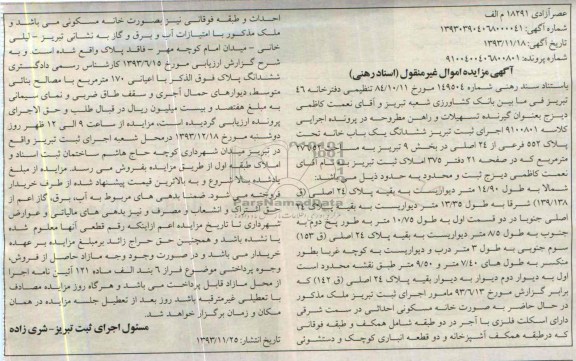 عصر آزادی ۱۸۲۹۱ م الف
شماره آگهی: ۱۳۹۳۰۳۹۰۴۰۶۸۰۰۰۰۴۱
تاریخ آگهی: ۱۳۹۳/۱۱/۱۸
شماره پرونده: ۹۱۰۰۴۰۰۴۰۶۸۰۰۸۰۱
آگهی مزایده اموال غیرمنقول (اسناد رهنی)
باستناد سند رهنی شماره ۱۴۹۵۰۴ مورخ ۸۴/۱۰/۱۱ تنظیمی دفترخانه ۴۶
تبریز فی ما بین بانک کشاورزی شعبه تبریز و آقای نعمت کاظمی
دیزج بعنوان گیرنده تسهیلات و راهن مطروحه در پرونده اجرایی
کلاسه ۹۱۰۰۸۰۱ اجرای ثبت تبریز ششدانگ یک باب خانه تحت
پلاک ۵۵۲ فرعی از ۲۴ اصلی در بخش ۹ تبریز به مساحت
مترمربع که در صفحه ۲۱ دفتر ۳۷۵ املاک ثبت تبریز بنام آقای
نعمت کاظمی دیزج ثبت و محدود به حدود ذیل می باشد:
شمالا به طول ۱۴/۹۰ متر دیواریست به بقیه پلاک ۲۴ اصلی (ق
۱۳۹/۱۳۸) شرقا به طول ۱۳/۳۵ متر دیواریست به بقیه پلاک ۲۴
اصلی جنوبا در دو قسمت اول به طول ۱۰/۷۵ متر به طور پخ دوم به
جنوب به طول ۸/۵ متر دیواریست به بقیه پلاک ۲۴ اصلی (ق ۱۵۳)
سوم جنوبی به طول ۳ متر درب و دیواریست به کوچه غربا بطور
منکسر به طول های ۷/۴۰ متر و ۹/۵۰ متر طبق نقشه محدود است
اول به دیوار دوم دیوار به دیوار بقیه پلاک ۲۴ اصلی (ق ۱۴۲) که
برابر گزارش مورخ ۹۳/۶/۱۳ مامور اجرای ثبت تبریز ملک مذکور
در حال حاضر به صورت خانه مسکونی احداثی در سمت شرقی
دارای اسکلت فلزی با آجر در دو طبقه شامل همکف و طبقه فوقانی
که درطبقه همکف آشپزخانه و دو قطعه انباری کوچک و دستشوئی
احداث و طبقه فوقانی نیز بصورت خانه مسکونی می باشد و
ملک مذکور با امتیازات آب و برق و گاز به نشانی تبریز - لیلی
خانی - میدان امام کوچه مهر - فاقد پلاک واقع شده است. و به
شرح گزارش ارزیابی مورخ ۱۳۹۳/۶/۱۵ کارشناس رسمی دادگستری
ششدانگ پلاک فوق الذکر با اعیانی ۱۷۰ مترمربع با مصالح بنائی
متوسط، دیوارهای حمال آجری و سقف طاق ضربی و نمای سیمانی
به مبلغ هفتصد و بیست میلیون ریال در قبال طلب و حق الاجرای
پرونده ارزیابی گردیده است، مزایده از ساعت ۹ الی ۱۲ ظهر روز
دوشنبه مورخ ۱۳۹۳/۱۲/۱۸ درمحل شعبه اجرای ثبت تبریز واقع
در تبریز میدان شهرداری کوچه حاج هاشم ساختمان ثبت اسناد و
املاک طبقه اول از طریق مزایده بفروش می رسد. مزایده از مبلغ
یادشده بالا شروع و به بالاترین قیمت پیشنهاد شده از طرف خریدار
فروخته می شود. ضمنا بدهی های مربوط به آب، برق، گاز اعم از
حق اشتراک و انشعاب و مصرف و نیز بدهی های مالیاتی و عوارض
شهرداری تا تاریخ مزایده اعم ازاینکه رقم قطعی آنها معلوم شده
یا نشده باشد و همچنین حق حراج زائد برمبلغ مزایده بر عهده
خریدار می باشد و در صورت وجود وجه مازاد حاصل از فروش،
وجوه پرداختی موضوع فراز ۶ بند الف ماده ۱۲۱ آئین نامه اجرا
از محل مازاد قابل پرداخت می باشد و هرگاه روز مزایده مصادف
با تعطیلی غیرمترقبه باشد روز بعد از تعطیل جلسه مزایده در همان
مکان و زمان برگزار خواهد شد.
مسئول اجرای ثبت تبریز - شری زاده
تاریخ انتشار: ۱۳۹۳/۱۱/۲۵